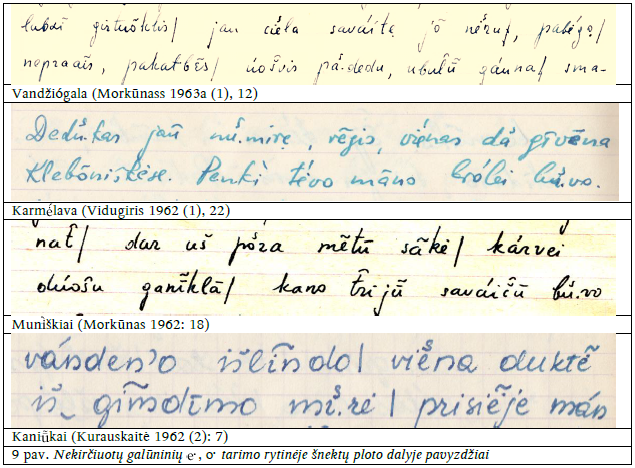 girtuõklis/ jau savaitę jō
pakatbė̃s/ úošvis pà.dedu, ubulū̃ gáuna/ sma-
Vandžiógala (Morkūnass 1963a (1), 12)
Dedù.kas jaũ nù.mirę, rẽgis, víenas dà gīvẽna
Klebõniškėse. Penkì tė́vo māno brólei bù.vo.
Karmė́lava (Vidugiris 1962 (1), 22)
dar uš póra mẽtū sãkė/ kárvei
dúošu ganĩklā/ kano trijū̃ savaĩčū bù.vo
Munìškiai (Morkūnas 1962: 18)
vánden'o išliñdo/ viena duktẽ
iš gimdīmo mì.rė/ prisiẽje mán
Kaniū̃kai (Kurauskaitė 1962 (2): 7)
9 pav. Nekirčiuotų galūninių e·, o· tarimo rytinėje šnektų ploto dalyje pavyzdžiai